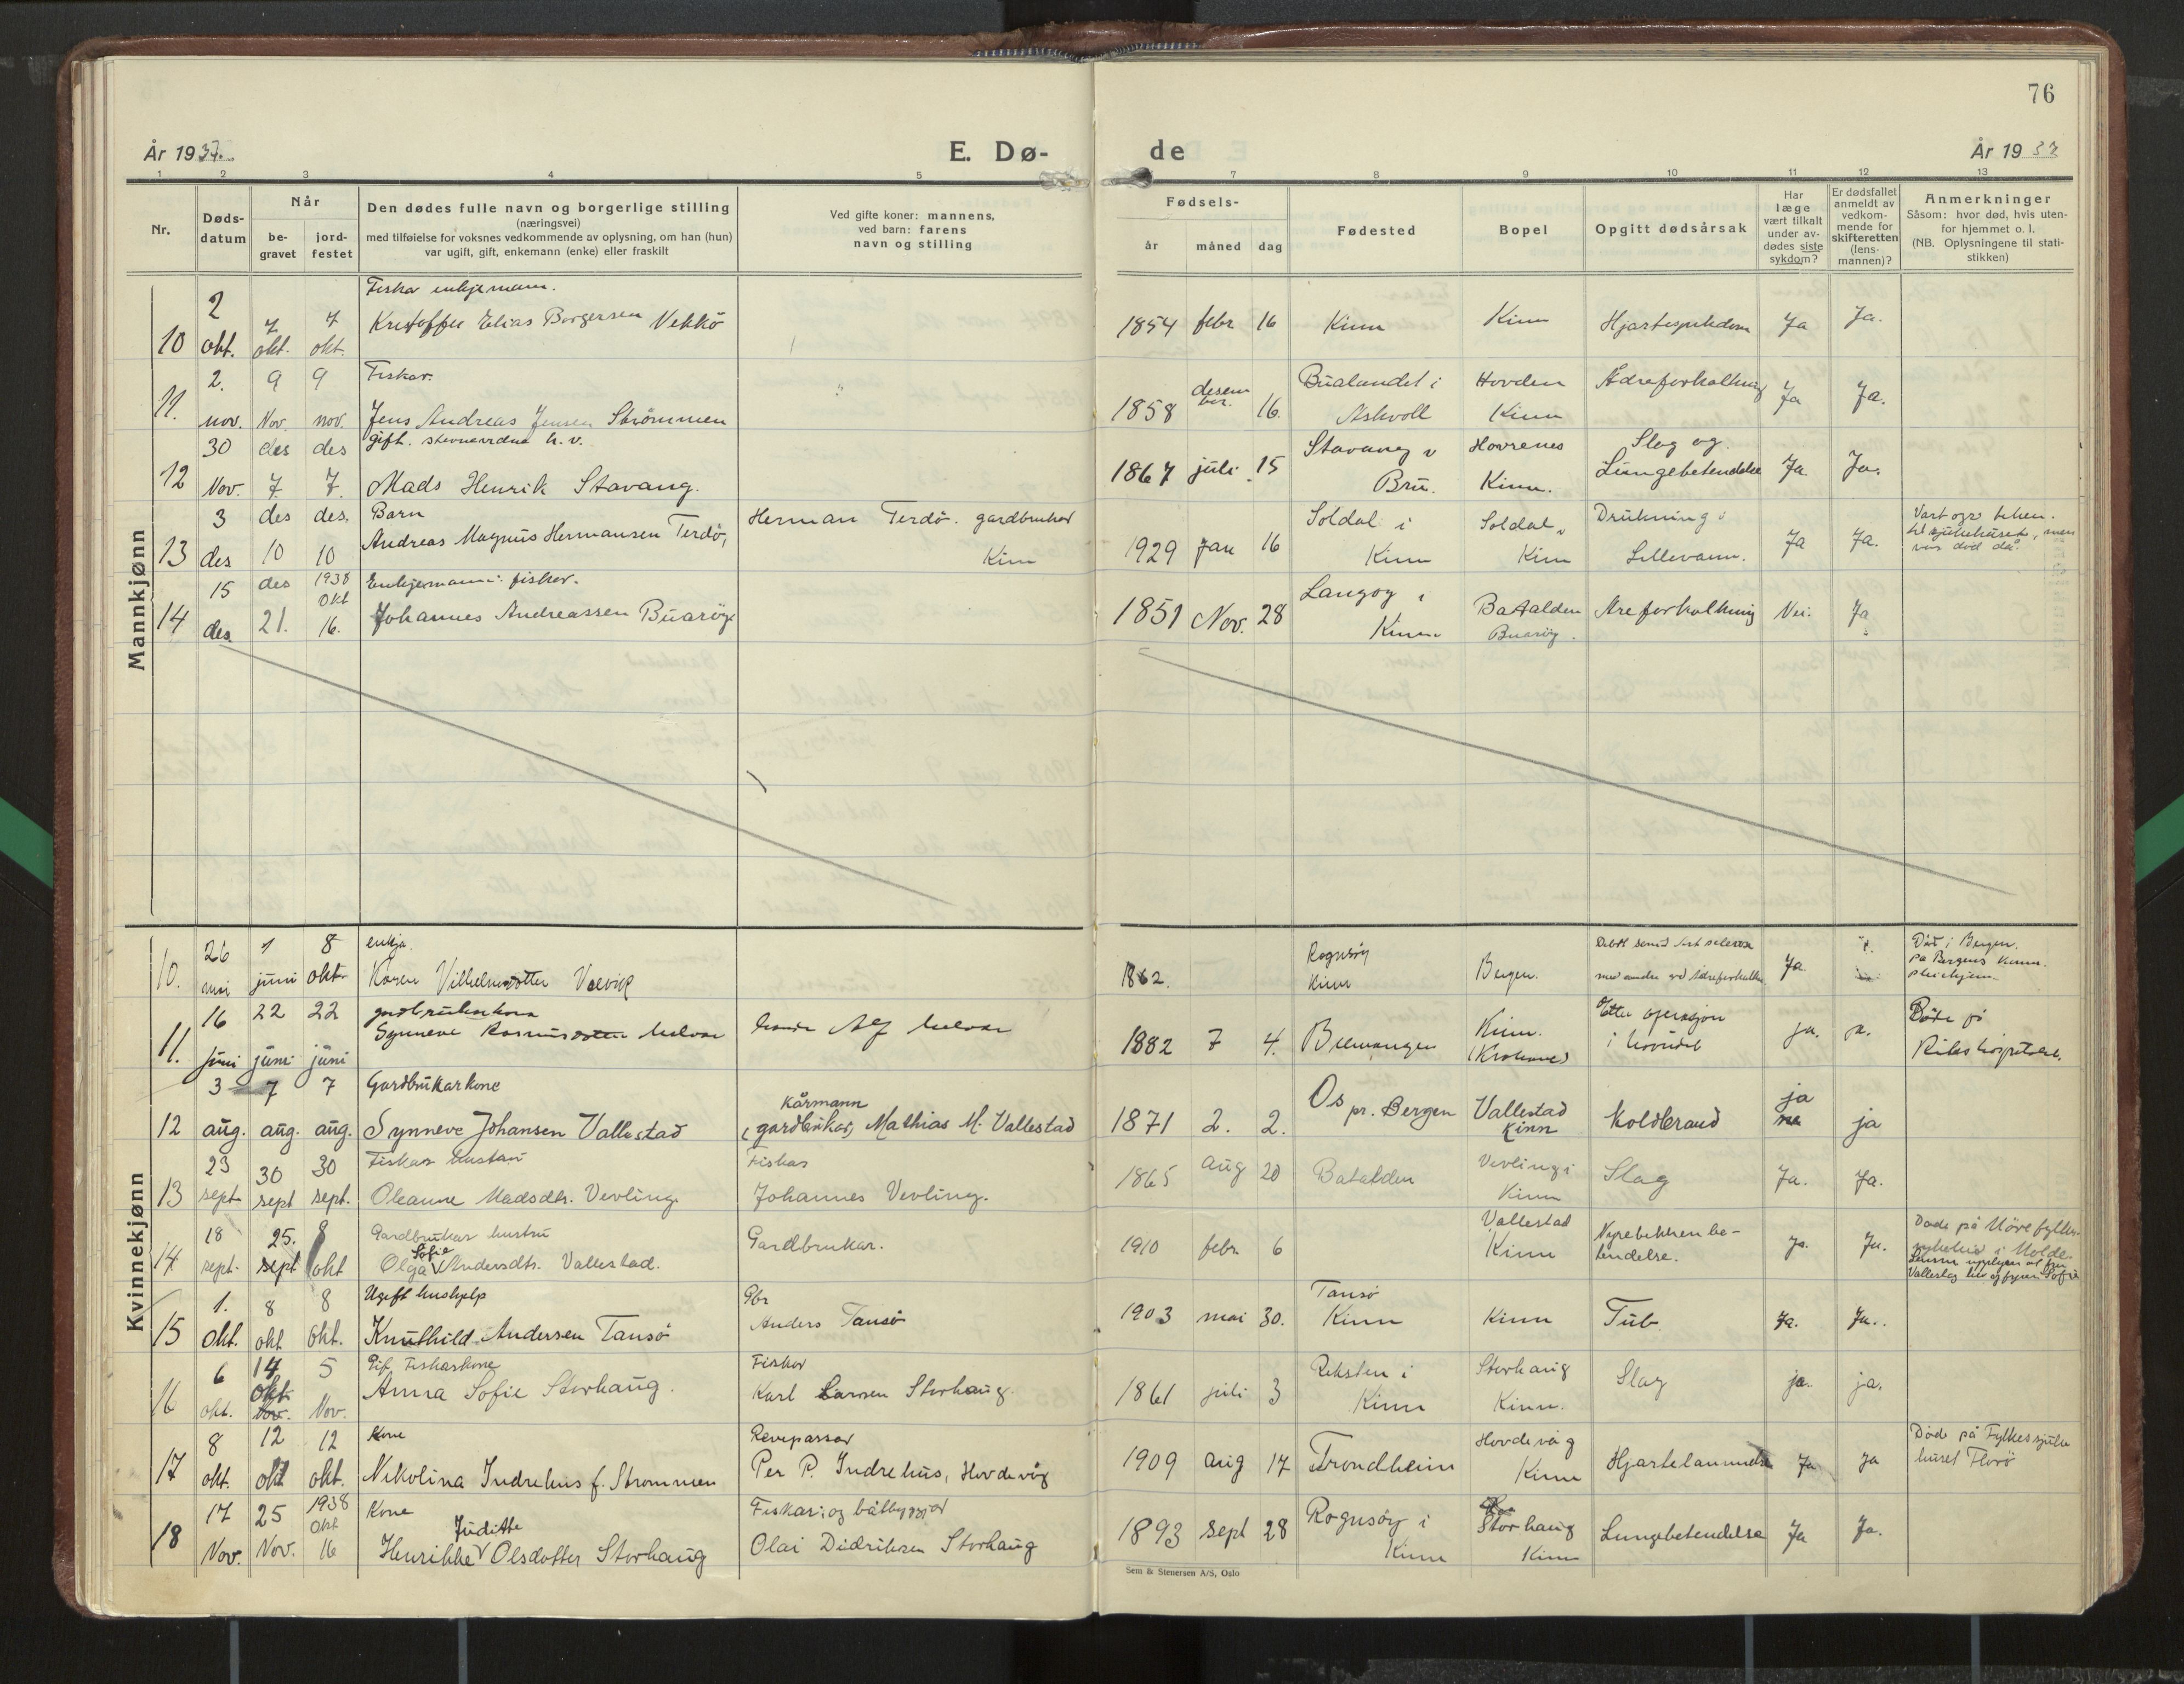 76
År 1937.
E. Dø-
de
År 1937
1 2 3 4 5
7 8 9 10 11 12 13
Nr.
Døds-
datum
Når
be-
gravet
jord-
festet
Den dødes fulle navn og borgerlige stilling
(næringsvei)
med tilføielse for voksnes vedkommende av oplysning, om han (hun)
var ugift, gift, enkemann (enke) eller fraskilt
Ved gifte koner: mannens,
ved barn: farens
navn og stilling
Fødsels-
år måned dag
Fødested
Bopel
Opgitt dødsårsak
Har
læge
vært tilkalt
under av-
dødes siste
sykdom?
Er dødsfallet
anmeldt av
vedkom-
mende for
skifteretten
(lens-
mannen)?
Anmerkninger
Såsom: hvor død, hvis uten-
for hjemmet o. l.
(NB. Oplysningene til stati-
stikken)
Mannkjønn
10 2 okt. 7 okt. 7 okt. Fiskar enkjemann.
Kristoffer Elias Borgersen Vekkö
1854 febr 16 Kinn Kinn Hjartesjukdom Ja Ja.
11. 2. nov. 9 Nov. 9 nov. Fiskar.
Jens Andreas Jensen Strömmen
1858 desember. 16. Bualandet i Askvoll Hovden Kinn Ja Ja.
12 30 Nov. des 7. des 7. gift. h. v.
Mads Henrik Stavang.
1867 juli 15 Stavang Bru. Hovrenes Kinn. Slag og Lungebetendelse Ja Ja.
13 3 des des 10 des. 10 Barn
Andreas Magnus Hermansen Terdö,
Herman Terdö. gardbrukar
Kinn
1929 Jan 16 Soldal i Kinn Soldal Kinn Drukning i Lillevann. Ja Ja.
14 15 des des 21. 1938 okt 16. Enkjemann: fisker.
Johannes Andreassen Buaröy
1851 Nov. 28 Langöy i Kinn Batalden Buaröy. Areforkalkning Nei. Ja
Kvinnekjønn
10. 26 mai 1 juni 8 okt. enkja.
Karen Vilhelmsdotter
1862. Rognsöy Kinn Bergen. Ja.
Död i Bergen.
på Bergens
11. 16 juni 22 juni 22 juni gardbrukarkona
Synneve Rasmusdotter Melvær
Melvær
1882 7 4. Bremangen Kinn. Etter operasjon i hovudet ja. ja.
Döde på
Rikshospitalet.
12 3 aug. 7 aug. 7 aug. Gardbrukarkone
Synneve Johansen Vallestad
kårmann
(gardbrukar) Mathias M. Vallestad
1871 2. 2. Os pr. Bergen Vallestad Kinn koldbrand ja ja
13 23 sept 30 sept 30 sept. Fiskar hustru
Oleanne Madsdtr. Vevling.
Fiskar
Johannes Vevling.
1865 Aug 20 Batalden Vevling i Kinn Slag Ja. Ja.
14 18 sept. 25. sept 8 okt Gardbrukar hustru
Olga Sofie Andersdtr. Vallestad.
Gardbrukar.
1910 febr. 6 Vallestad Kinn Nyrebekkenbe-
tendelse. Ja. Ja.
Döde på Möre fylkes-
sykehus i Molde.
15 1. okt. 8 okt 8 okt. Ugift hushjelp
Knuthild Andersen Tansö
Gbr
Anders Tansö
1903 mai 30. Tansö Kinn Kinn Tub. Ja. Ja.
16 6 okt. 14 okt. 5 Nov. Gift Fiskarkone
Anna Sofie Storhaug.
Fiskar
Karl Larsen Storhaug.
1861 juli 3 Reksten i Kinn Storhaug Kinn. Slag ja. ja.
17 8 okt. 12 okt 12 okt. Kone
Nikolina Indrehus f. Strommen
Revepassar
Per P. Indrehus, Hovdevåg
1909 aug 17 Trondheim Hovdevåg Kinn Hjartelammelse Ja Ja
Döde på Fylkessjuke
huset Florö
18 17 Nov. 25 Nov. 1938 Okt 16 Kone
Juditte
Henrikke Olsdotter Storhaug
Fiskar; og båtbyggjar
Olai Didriksen Storhaug
1893 Sept 28 Rognsöy i Kinn Storhaug Kinn Lungebetendelse Ja Ja.
Sem & Stenersen A/S, Oslo